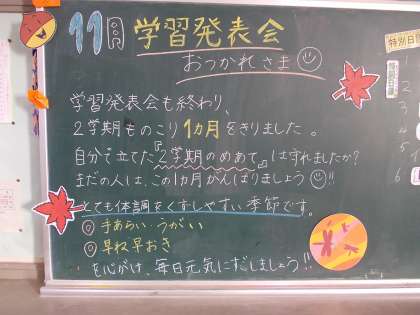 11月 学習発表会
おつかれさま
学習発表会も終わり、
2学期ものこり1カ月をきりました。
自分で立てた『2学期のめあて』は守れましたか?
まだの人は、この1カ月がんばりましょう!!
とても体調をくずしやすい季節です。
◎手あらい・うがい
◎早ね早おき
を心がけ、毎日元気にすごしましょう!!
特別日
1
2
3
4
5
6